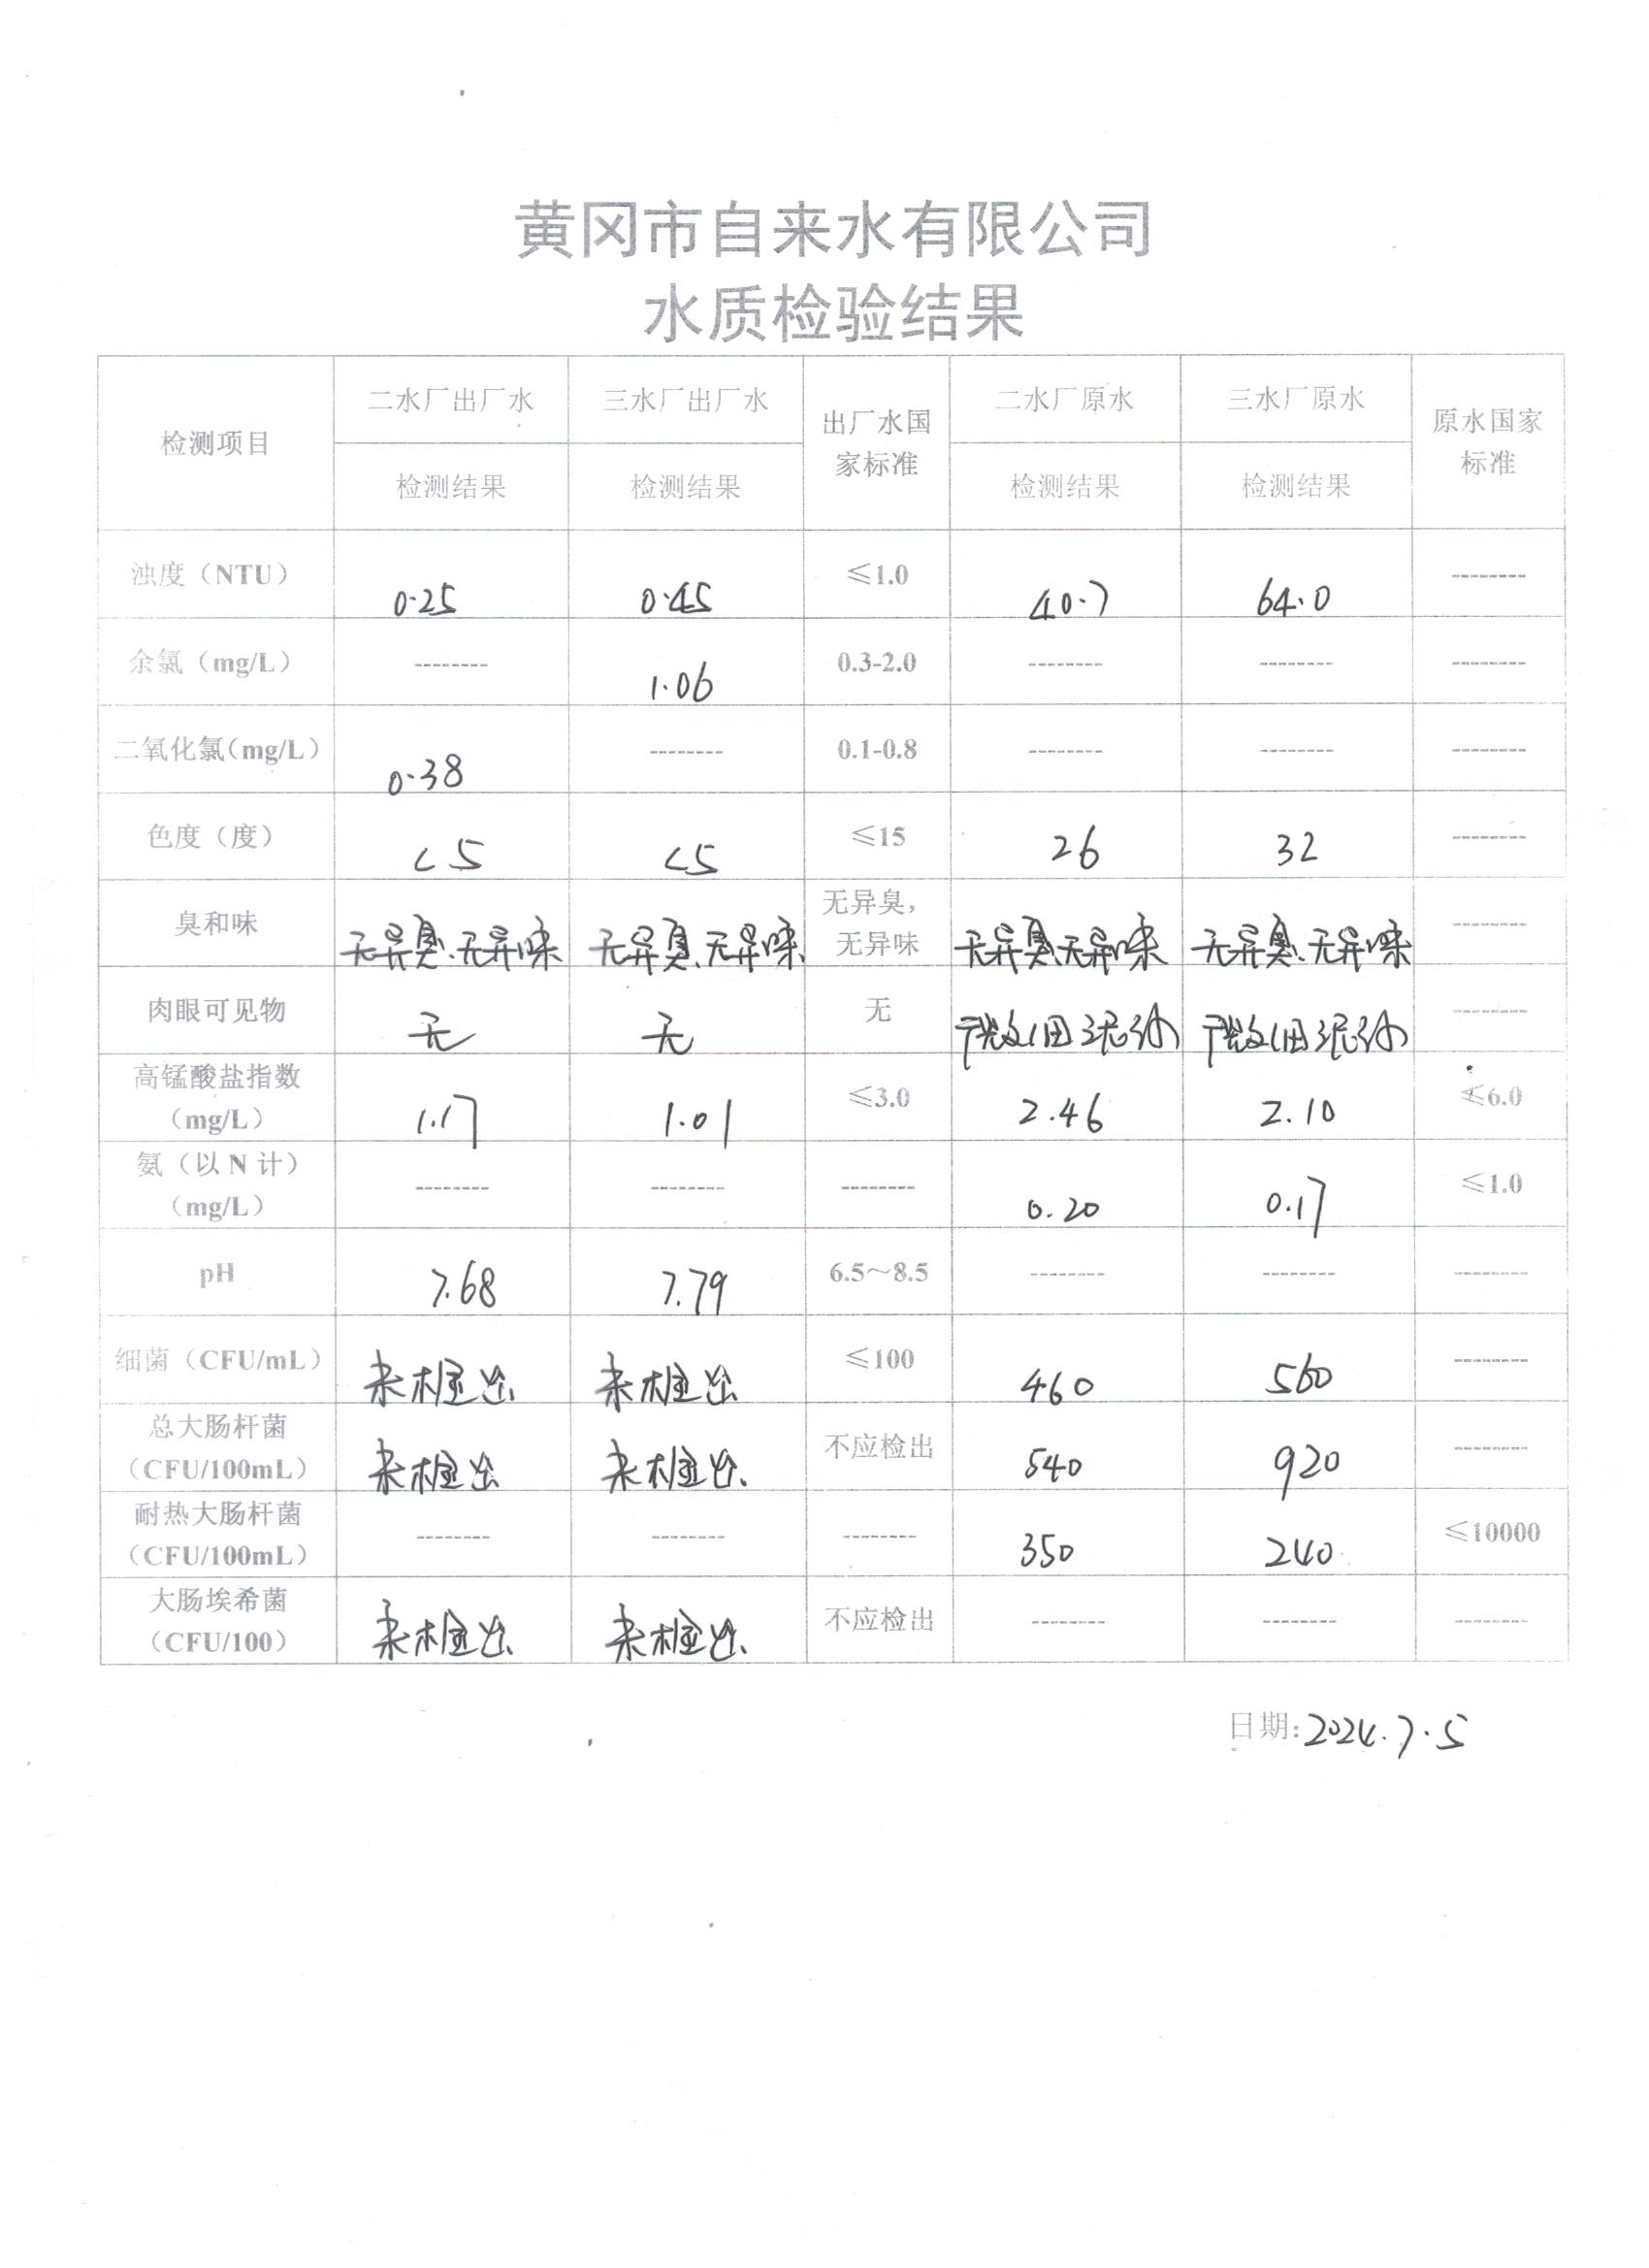 黄冈市自来水有限公司
水质检验结果
检测项目 二水厂出厂水 三水厂出厂水 出厂水国家标准 二水厂原水 三水厂原水 原水国家标准
检测结果 检测结果 检测结果 检测结果
浊度（NTU） 0.25 0.45 ≤1.0 40.7 64.0 --------
余氯（mg/L） -------- 1.06 0.3-2.0 -------- -------- --------
二氧化氯（mg/L） 0.38 -------- 0.1-0.8 -------- -------- --------
色度（度） <5 <5 ≤15 26 32 --------
臭和味 无异臭、无异味 无异臭、无异味 无异臭，无异味 无异臭、无异味 无异臭、无异味 --------
肉眼可见物 无 无 无 微细泥沙 微细泥沙 --------
高锰酸盐指数（mg/L） 1.17 1.01 ≤3.0 2.46 2.10 ≤6.0
氨（以N计）（mg/L） -------- -------- -------- 0.20 0.17 ≤1.0
pH 7.68 7.79 6.5～8.5 -------- -------- --------
细菌（CFU/mL） 未检出 未检出 ≤100 460 560 --------
总大肠杆菌（CFU/100mL） 未检出 未检出 不应检出 540 920 --------
耐热大肠杆菌（CFU/100mL） -------- -------- -------- 350 240 ≤10000
大肠埃希菌（CFU/100） 未检出 未检出 不应检出 -------- -------- --------
日期：2024.7.5